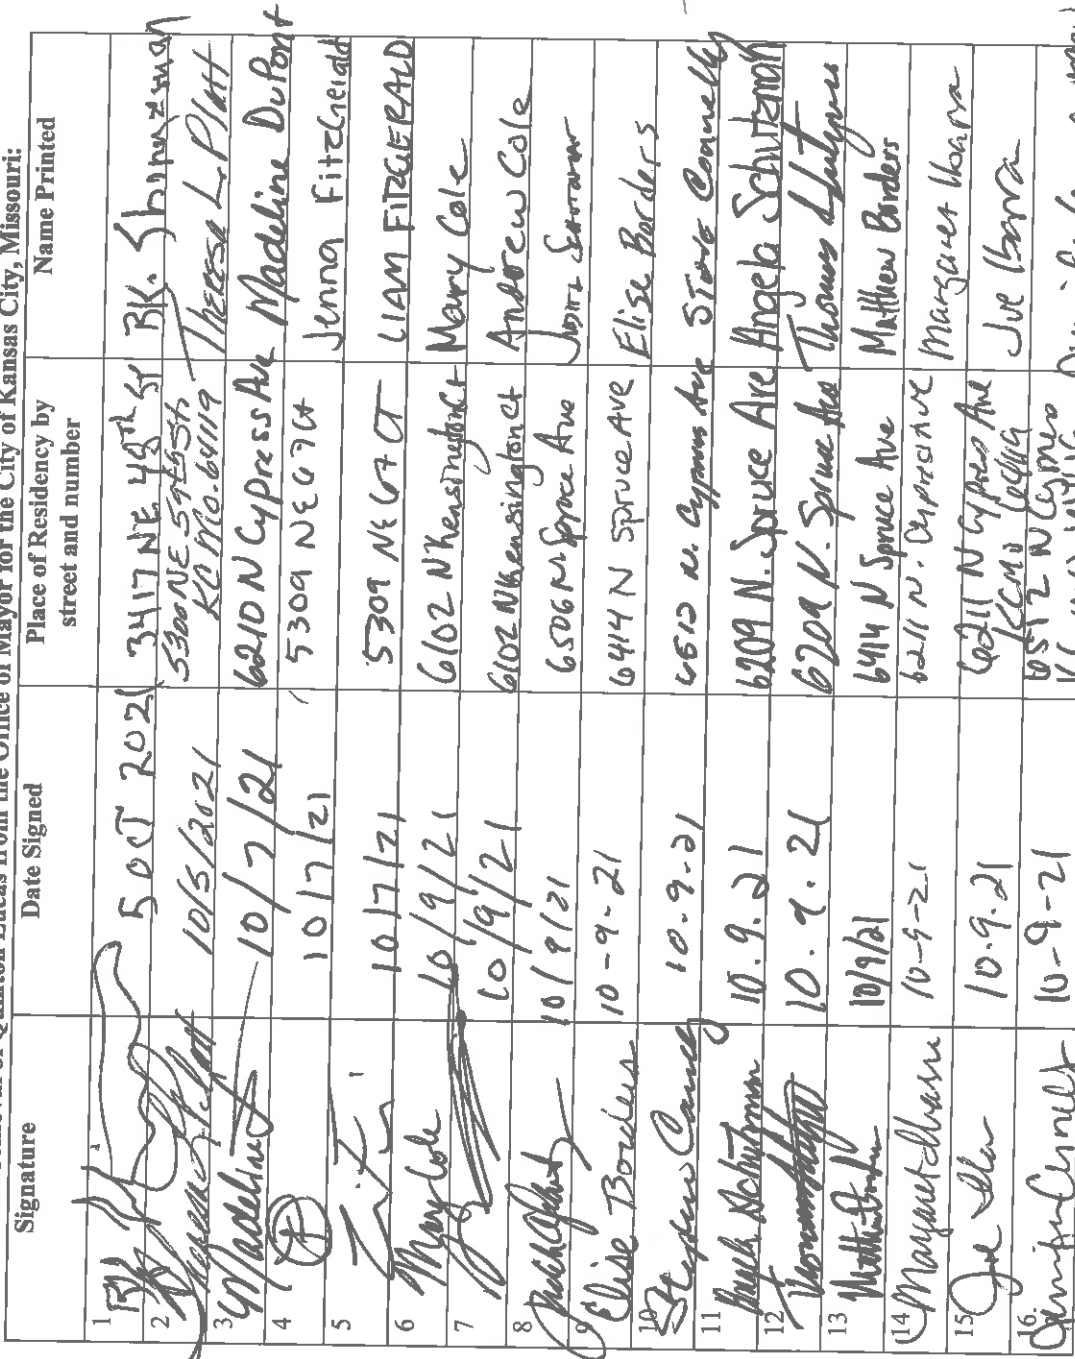 Quinton Lucas from the Office of Mayor for the City of Kansas City, Missouri:
Signature Date Signed Place of Residency by street and number Name Printed
1 5 OCT 2021 3417 NE 48th St BK.
2 10/5/2021 5300 NE 59 KC Mo. 64119 Theresa L. Platt
3 Madeline 10/7/21 6210 N Cypress Ave Madeline DuPont
4 10/7/21 5309 NE 67 Ct Jenna Fitzgerald
5 10/7/21 5309 NE 67 CT LIAM FITZGERALD
6 Mary Cole 10/9/21 6102 N Kensington Ct Mary Cole
7 10/9/21 6102 N Kensington Ct Andrew Cole
8 10/9/21 6506 N Spruce Ave
9 Elise Borders 10-9-21 6414 N Spruce Ave Elise Borders
10 10.9.21 6512 N. Cypress Ave Steve Connelly
11 Angela Schutzman 10.9.21 6209 N. Spruce Ave Angela Schutzman
12 10.9.21 6209 N. Spruce Ave Thomas
13 10/9/21 6414 N Spruce Ave Matthew Borders
14 Margaret 10-9-21 6211 N. Cypress Ave Margaret
15 Joe 10.9.21 6211 N Cypress Ave KCMO Joe
16. 10-9-21 6512 N Cypress